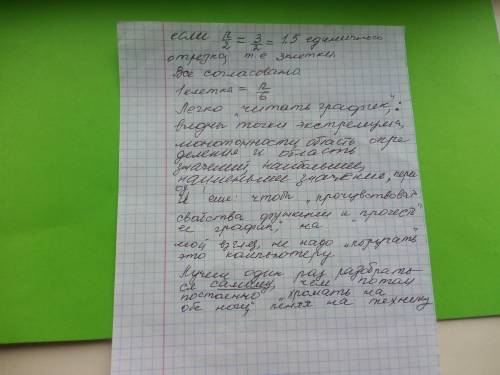 если π/2 = 3/2 = 1.5 единичного
отрезка, т.е 3 клетки
Все согласовано
1 клетка = π/6
Легко "читать график":
видны точки экстремума,
монотонность, область опре
деления и область
значений, наибольшее,
наименьшее значение, пери
од
И еще: чтобы "прочувствовать
свойства функции и прочесть
ее график", на
мой взгляд, не надо "поручать"
это компьютеру
Лучше один раз разобрать-
ся самому, чем потом
постоянно "хромать на
обе ноги" пеняя на технику